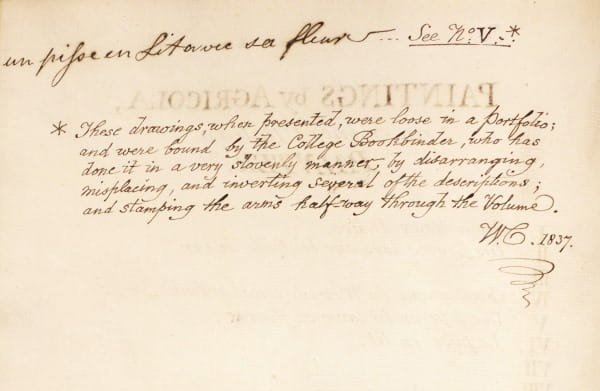 un pisse en Lit avec sa fleur ... See No. V. *
PAINTINGS by AGRICOLA,
* These drawings, when presented, were loose in a Portfolio;
and were bound by the College Bookbinder, who has
done it in a very slovenly manner, by disarranging,
misplacing, and inverting several of the descriptions;
and stamping the arms half-way through the Volume.
W.C. 1837.